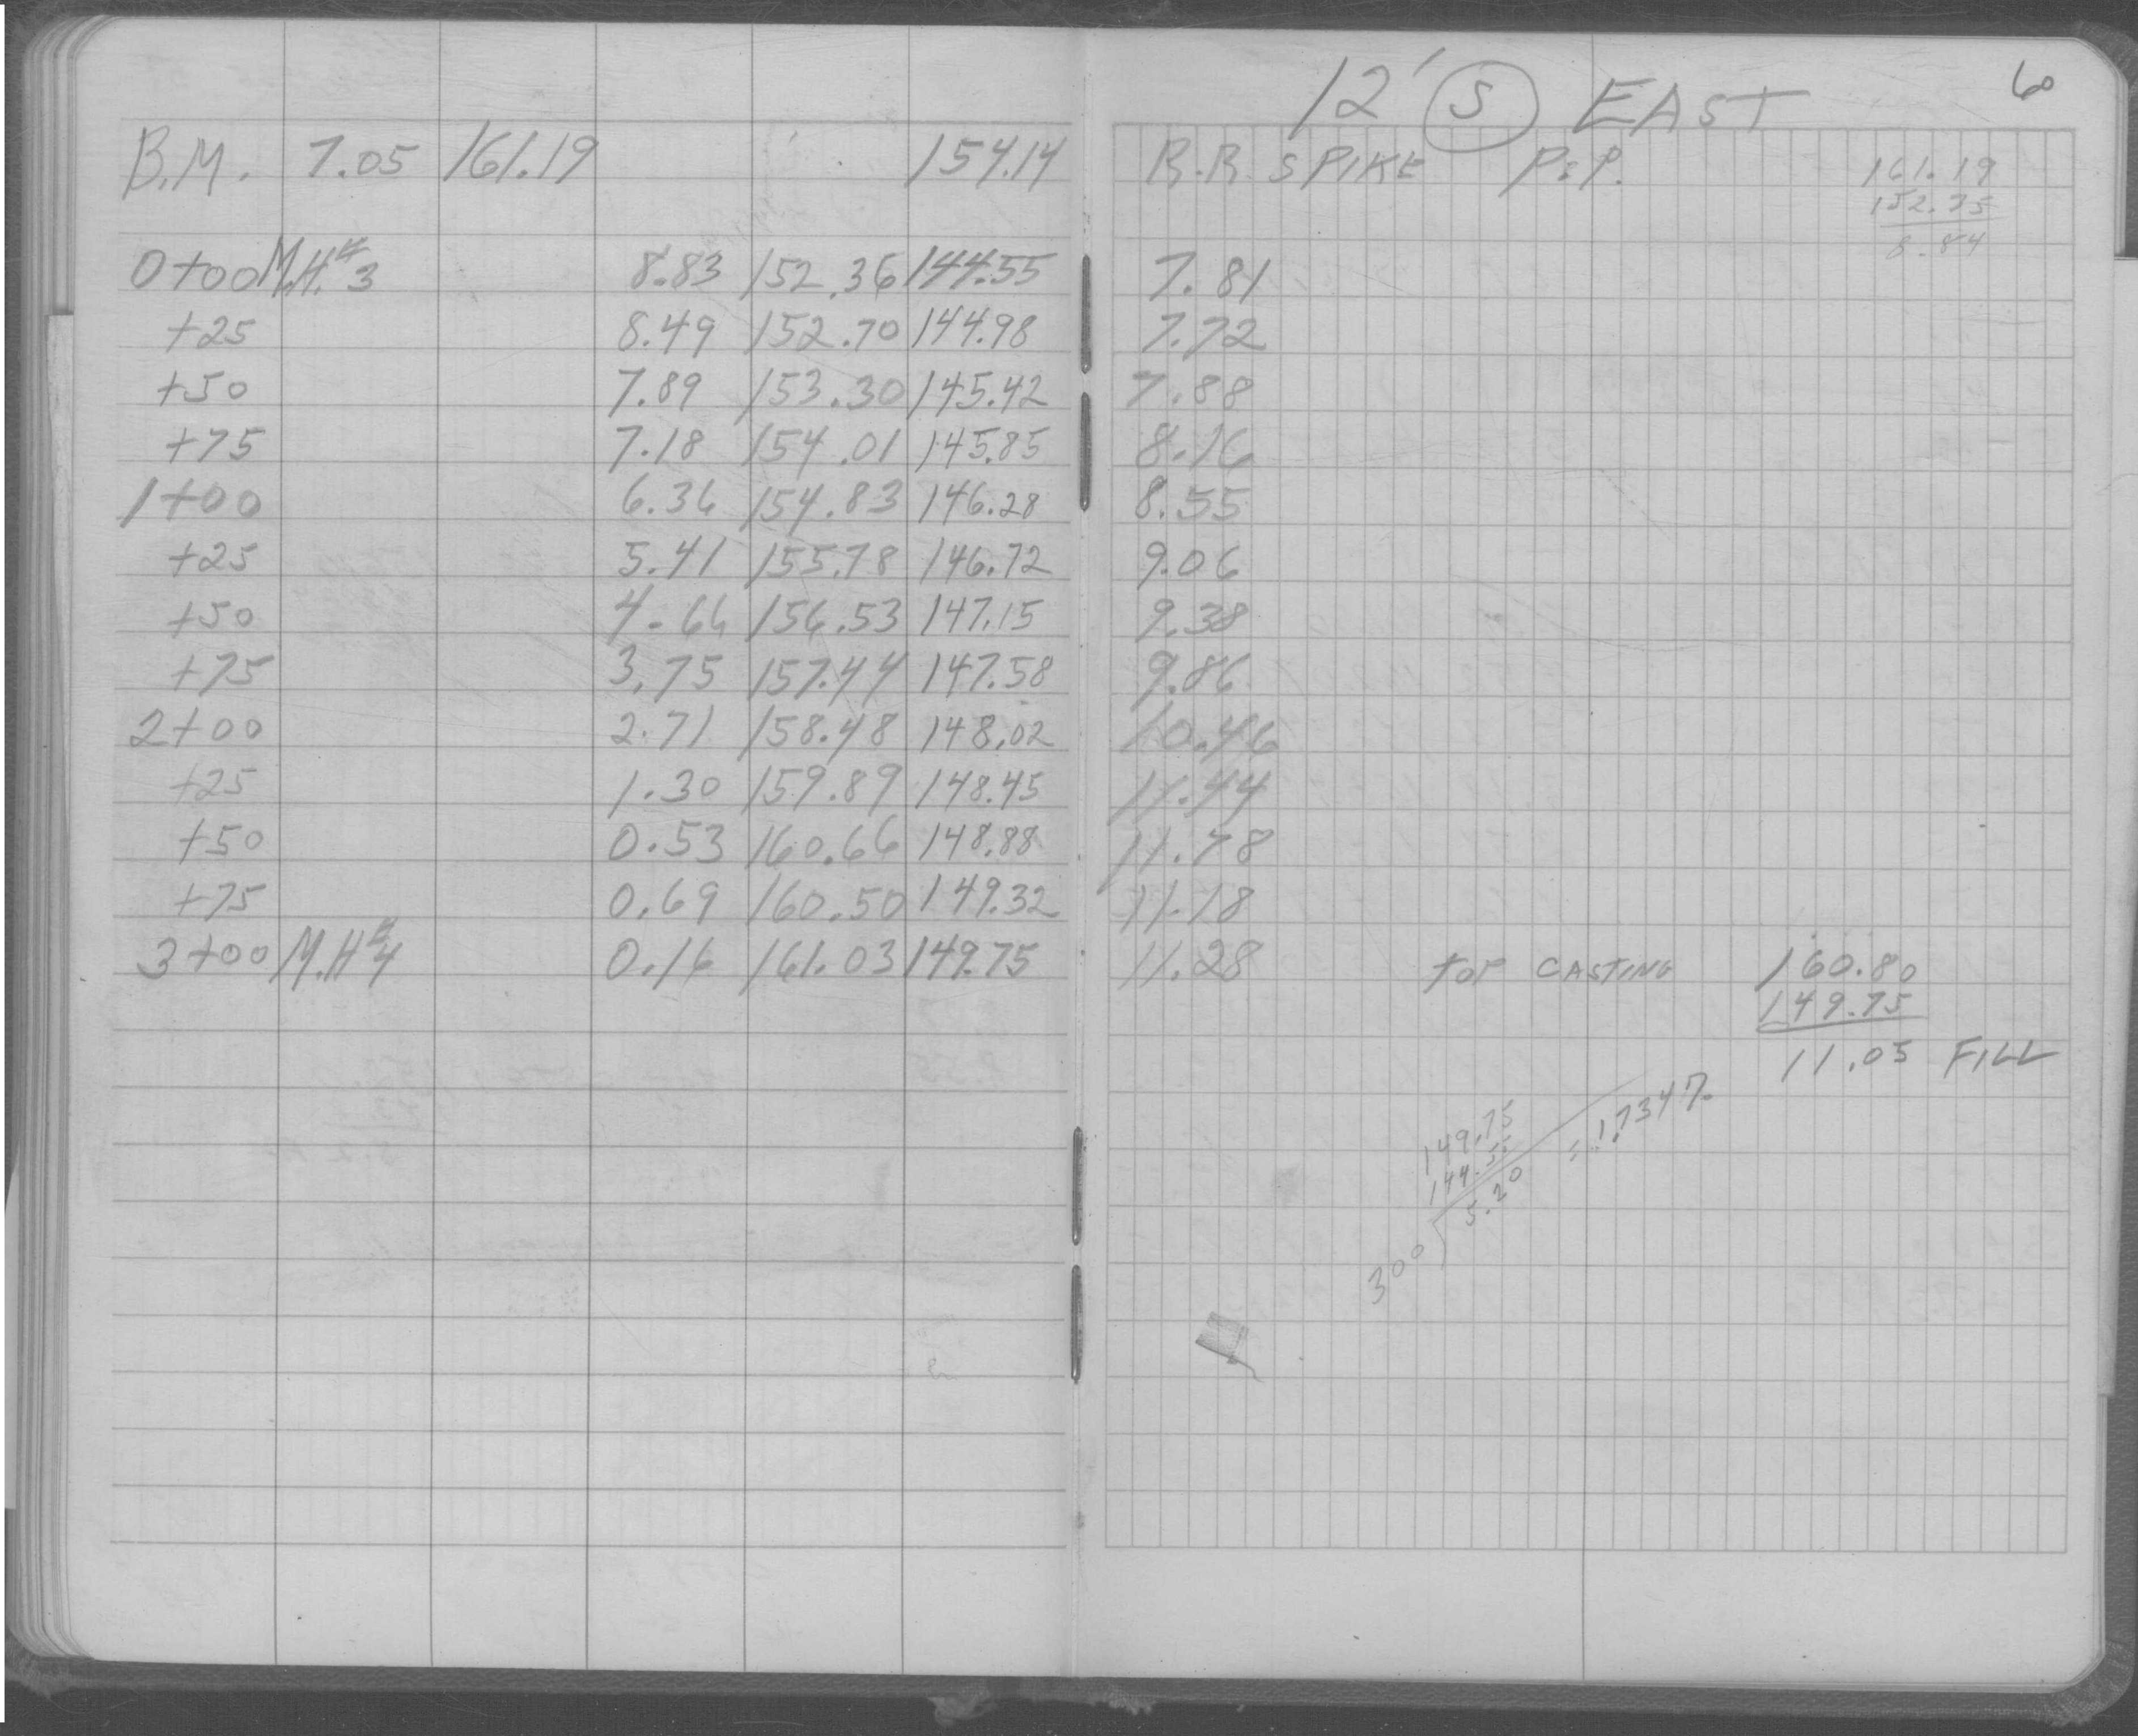 12' S EAST 6
B.M. 7.05 161.19 154.14 R.R. SPIKE P.P. 161.19
152.35
8.84
0+00 M.H.#3 8.83 152.36 144.55 7.81
+25 8.49 152.70 144.98 7.72
+50 7.89 153.30 145.42 7.88
+75 7.18 154.01 145.85 8.16
1+00 6.36 154.83 146.28 8.55
+25 5.41 155.78 146.72 9.06
+50 4.66 156.53 147.15 9.38
+75 3.75 157.44 147.58 9.86
2+00 2.71 158.48 148.02 10.46
+25 1.30 159.89 148.45 11.44
+50 0.53 160.66 148.88 11.78
+75 0.69 160.50 149.32 11.18
3+00 M.H#4 0.16 161.03 149.75 11.28 TOP CASTING 160.80
149.75
11.05 FILL
149.75
144.55
300 5.20 = 1.734%